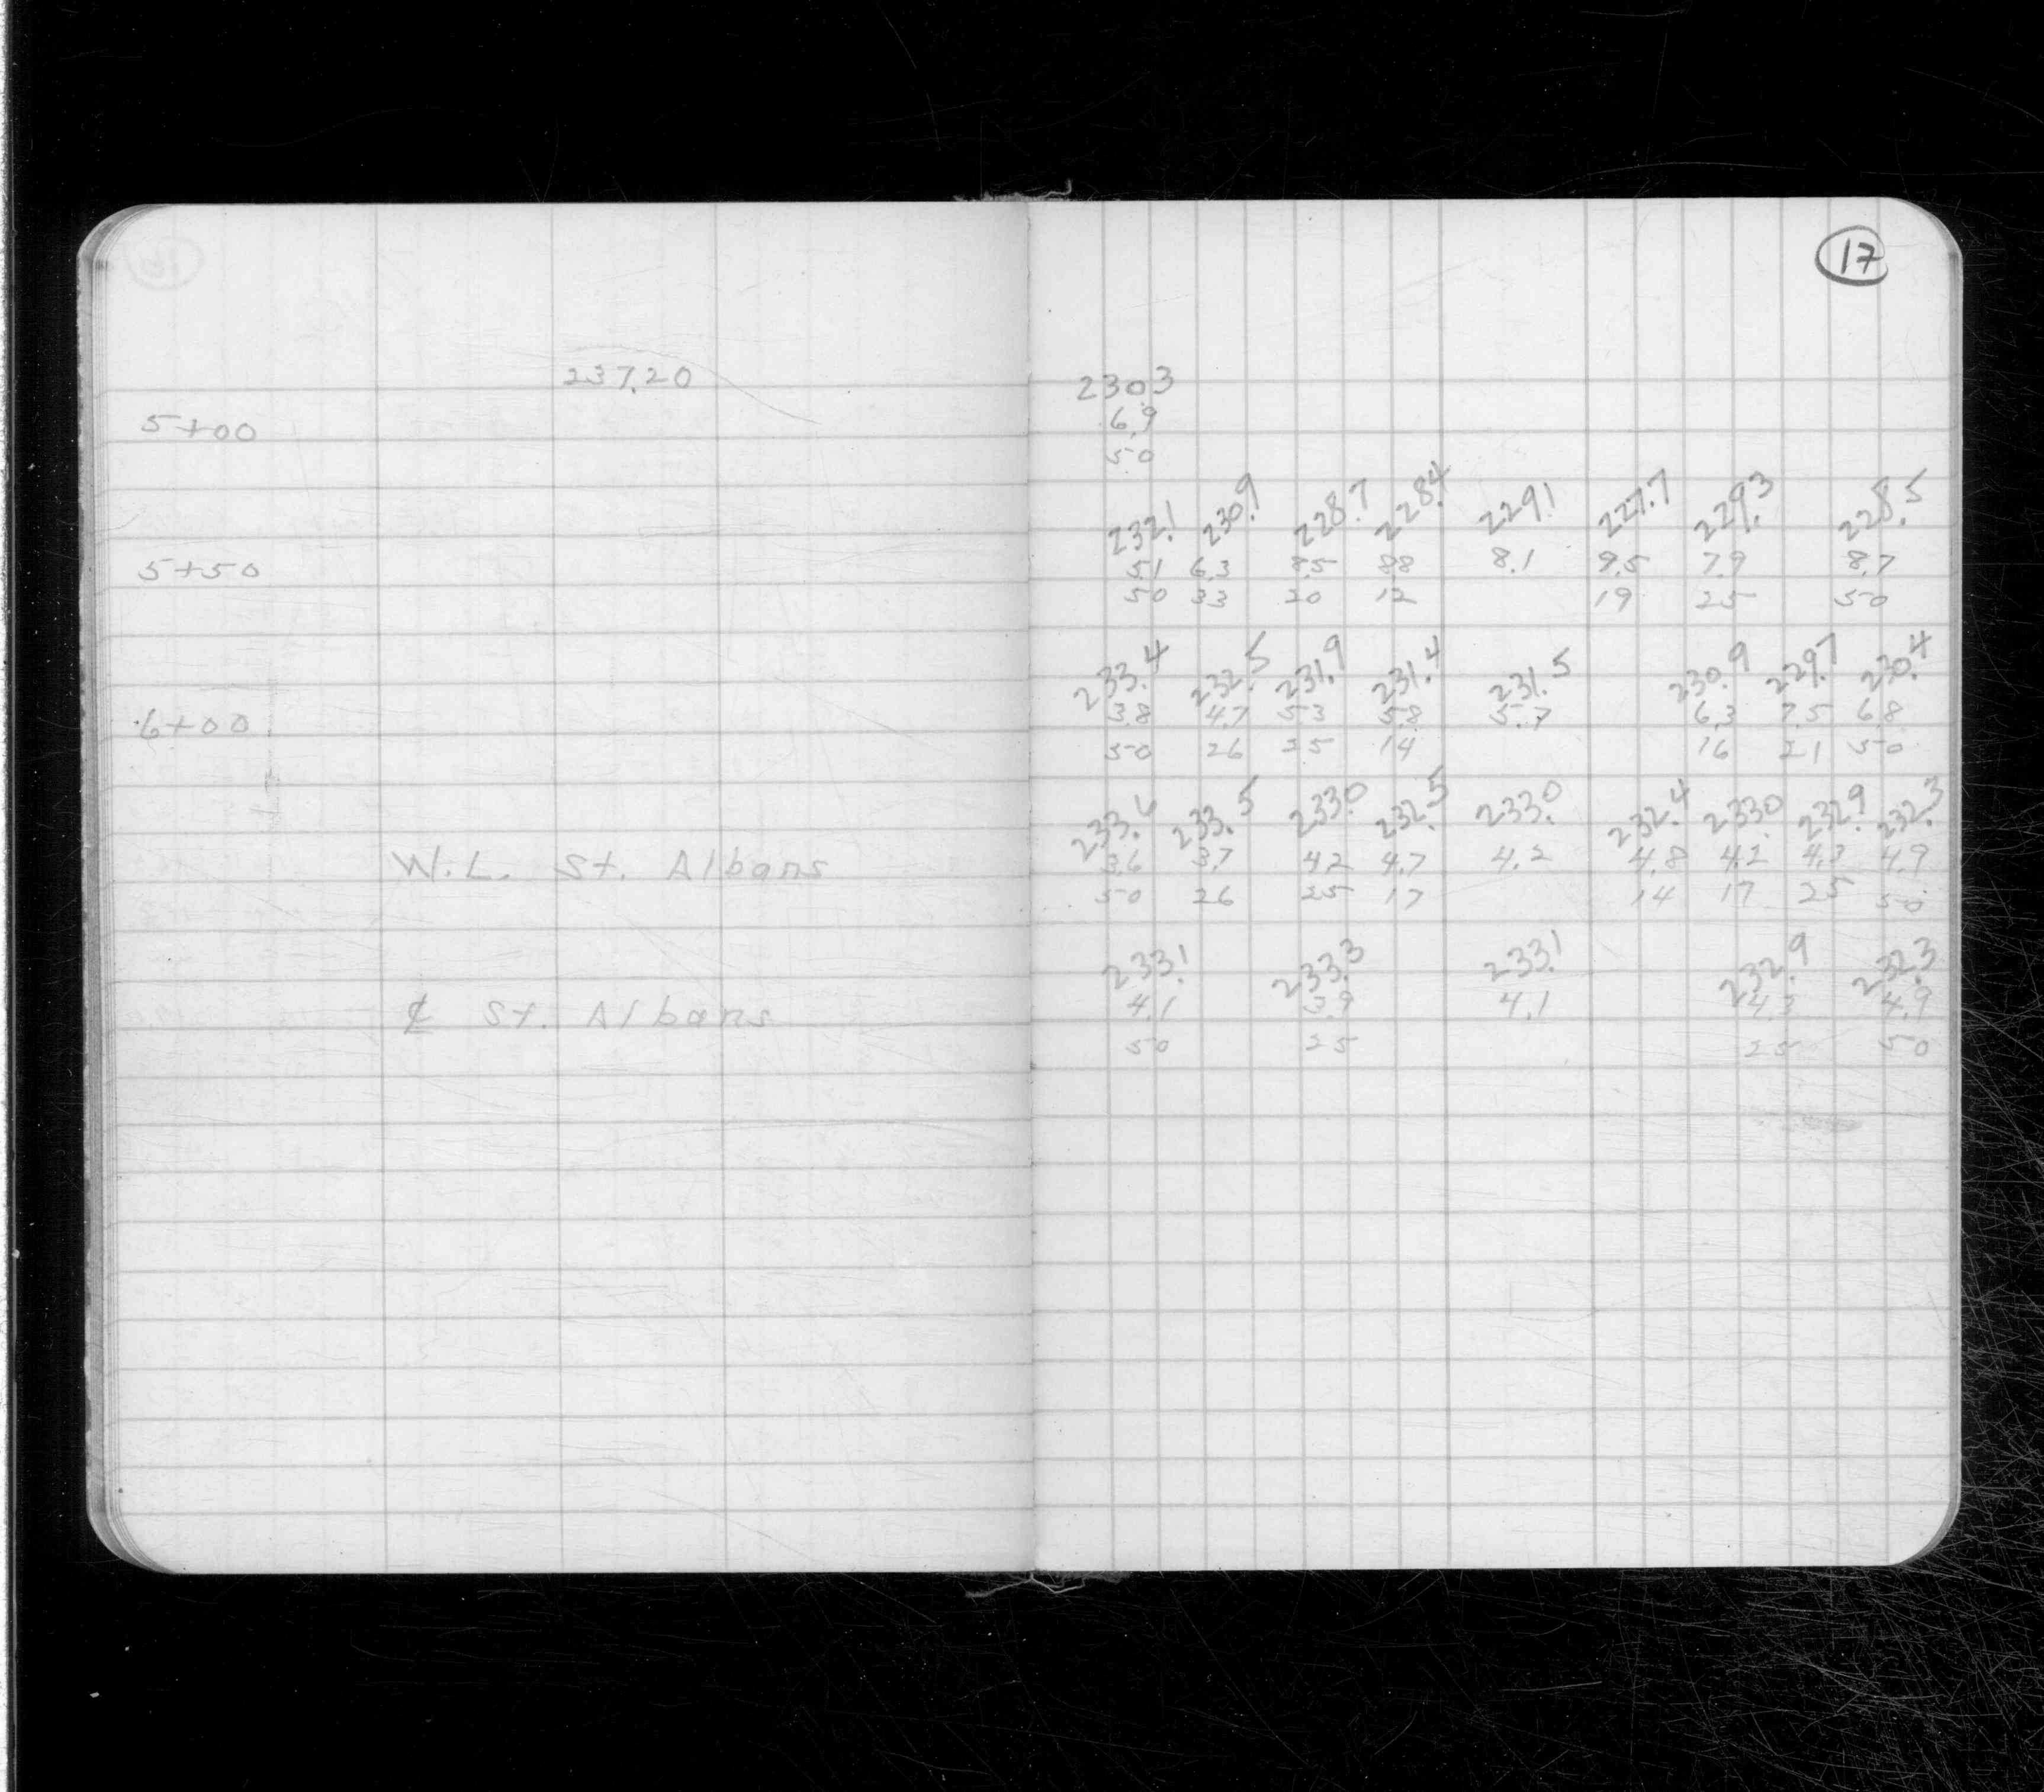 17
237.20
230.3
5+00
6.9
50
232.1 230.9 228.7 228.4 229.1 227.7 229.3 228.5
5+50
5.1 6.3 8.5 8.8 8.1 9.5 7.9 8.7
50 33 20 12 19 25 50
233.4 232.5 231.9 231.4 231.5 230.9 229.7 230.4
6+00
3.8 4.7 5.3 5.8 5.7 6.3 7.5 6.8
50 26 25 14 16 21 50
233.6 233.5 233.0 232.5 233.0 232.4 233.0 232.9 232.3
W.L. St. Albans
3.6 3.7 4.2 4.7 4.2 4.8 4.2 4.3 4.9
50 26 25 17 14 17 25 50
233.1 233.3 233.1 232.9 232.3
℄ St. Albans
4.1 3.9 4.1 4.3 4.9
50 25 25 50